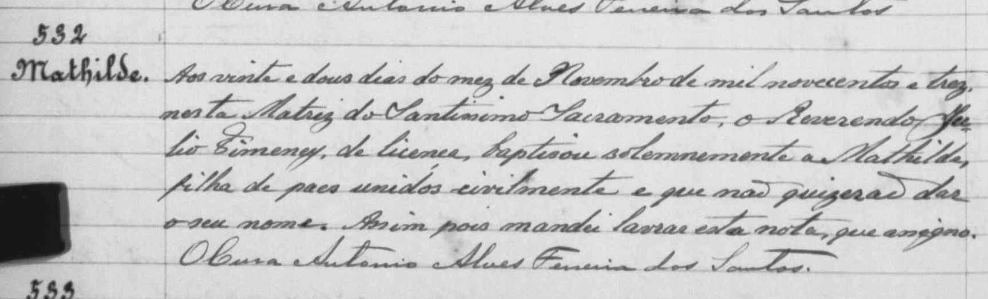 O Cura Antonio Alves Ferreira dos Santos
532
Mathilde.
Aos vinte e dous dias do mez de Novembro de mil novecentos e trez,
nesta Matriz do Santissimo Sacramento, o Reverendo Ju-
lio Gimeney, de licença, baptisou solemnemente a Mathilde,
filha de paes unidos civilmente e que não quizerão dar
o seu nome. Assim pois mandei lavrar esta nota, que assigno.
O Cura Antonio Alves Ferreira dos Santos.
533